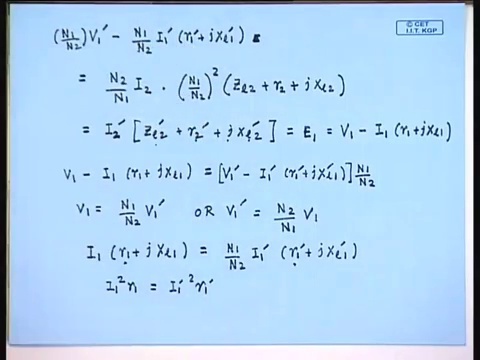 © CET
I.I.T. KGP
(N1/N2) V1' - N1/N2 I1' (r1' + j xl1')
= N2/N1 I2 . (N1/N2)² (Zl2 + r2 + j xl2)
= I2' [Zl2' + r2' + j xl2'] = E1 = V1 - I1 (r1 + j xl1)
V1 - I1 (r1 + j xl1) = [V1' - I1' (r1' + j xl1')] N1/N2
V1 = N1/N2 V1' OR V1' = N2/N1 V1
I1 (r1 + j xl1) = N1/N2 I1' (r1' + j xl1')
I1² r1 = I1'² r1'